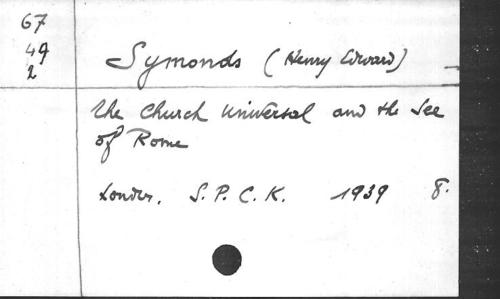 67
49
2
Symonds (Henry Edward)
The Church Universal and the See
of Rome
London. S.P.C.K. 1939 8.